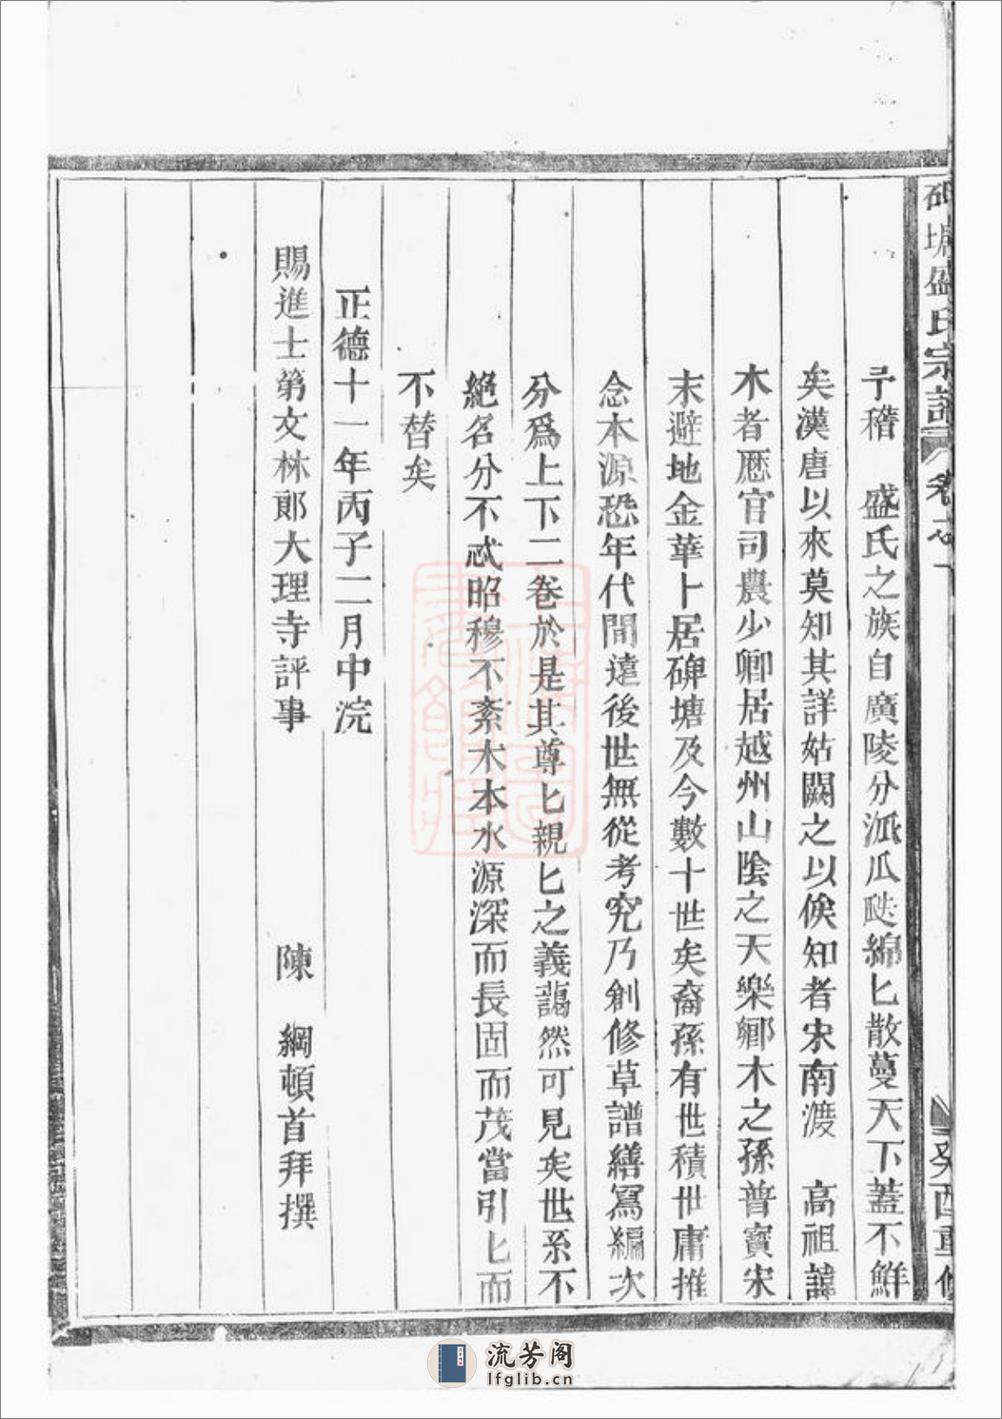 塘盛氏宗譜 卷 癸酉重修
予稽 盛氏之族自廣陵分派瓜瓞綿匕散蔓天下蓋不鮮
矣漢唐以來莫知其詳姑闕之以俟知者宋南渡 高祖諱
木者歷官司農少卿居越州山陰之天樂鄉木之孫普寶宋
末避地金華卜居碑塘及今數十世矣裔孫有世積世庸推
念本源恐年代間遠後世無從考究乃創修草譜繕寫編次
分爲上下二卷於是其尊匕親匕之義藹然可見矣世系不
絕名分不忒昭穆不紊木本水源深而長固而茂當引匕而
不替矣
正德十一年丙子二月中浣
賜進士第文林郞大理寺評事 陳 綱頓首拜撰
流芳阁
lfglib.cn